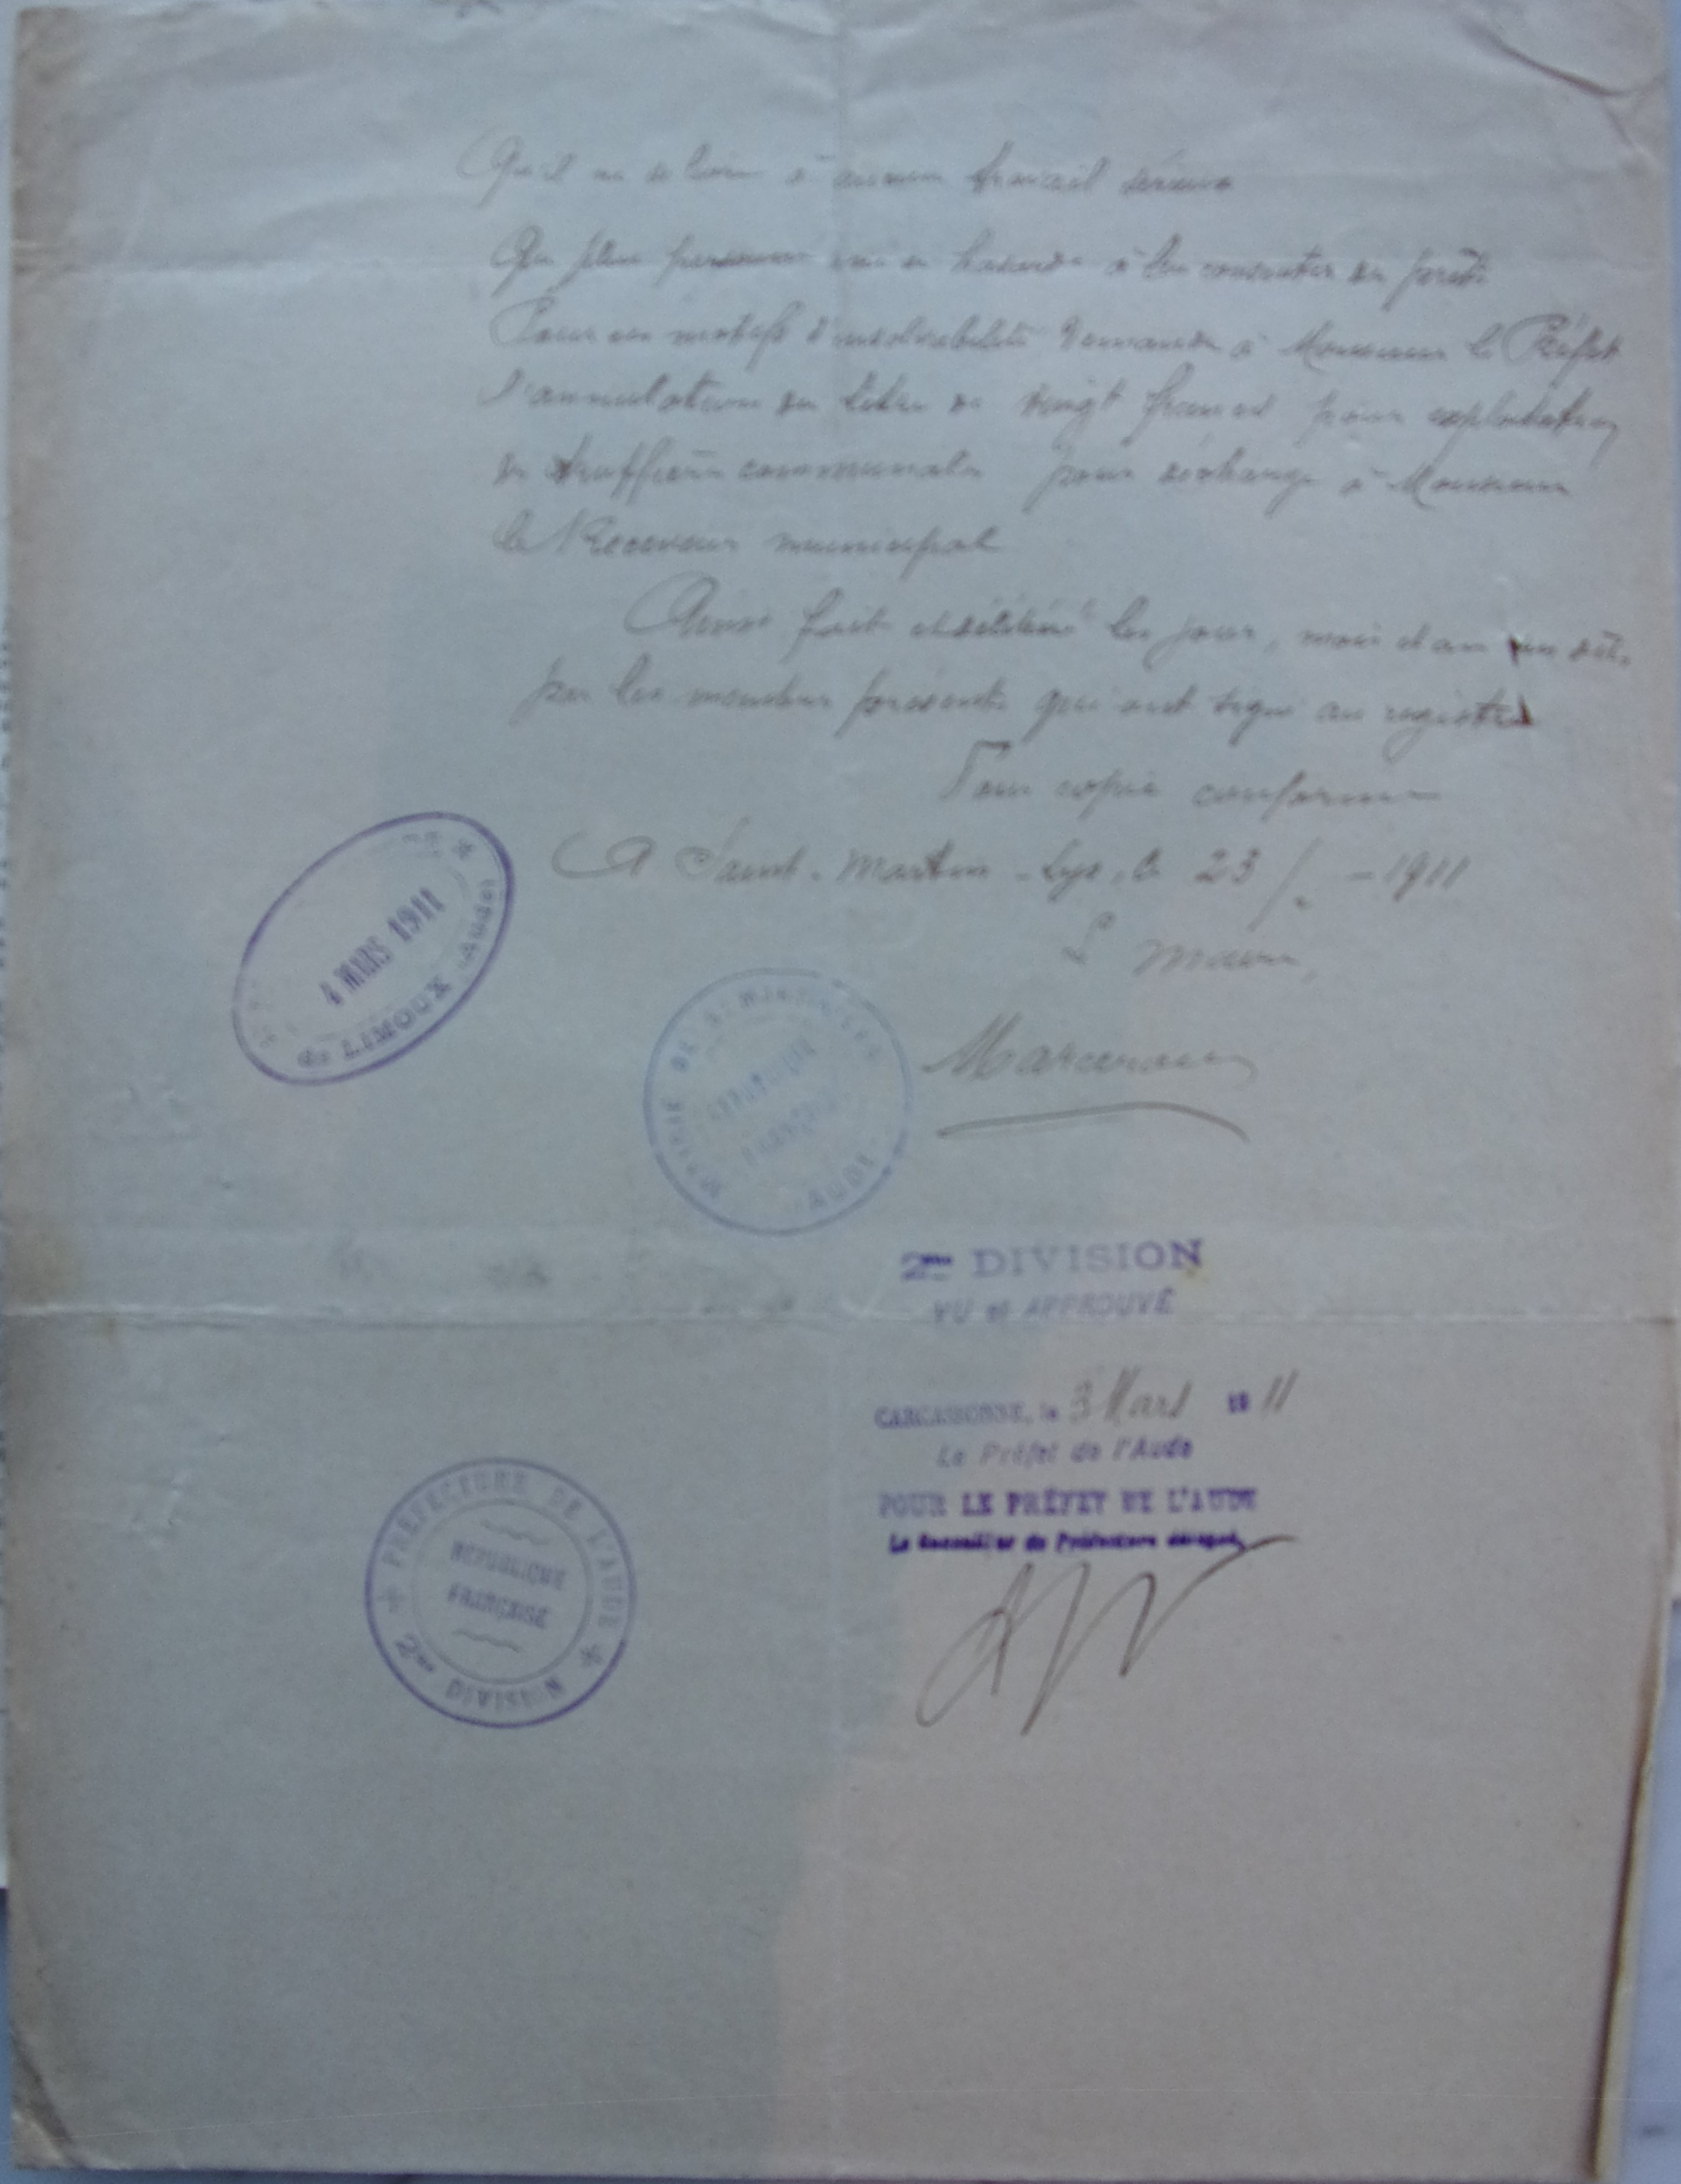 Qu'il ne se livre à aucun travail sérieux
Que plus personne ne se hasarde à lui consentir des prêts
Pour ces motifs d'insolvabilité demande à Monsieur le Préfet
l'annulation du titre de vingt francs pour exploitation
de truffière communale pour décharge à Monsieur
le Receveur municipal
Ainsi fait et délibéré les jour, mois et an que dit.
par les membres présents qui ont signé au registre
Pour copie conforme
A Saint-Martin-Lys, le 23 - 1911
Le Maire,
4 MARS 1911
de LIMOUX (Aude)
MAIRIE DE St MARTIN-LYS
RÉPUBLIQUE
FRANÇAISE
AUDE
2me DIVISION
VU et APPROUVÉ
CARCASSONNE, le 3 Mars 1911
Le Préfet de l'Aude
POUR LE PRÉFET DE L'AUDE
Le Conseiller de Préfecture délégué,
PRÉFECTURE DE L'AUDE
RÉPUBLIQUE
FRANÇAISE
2me DIVISION